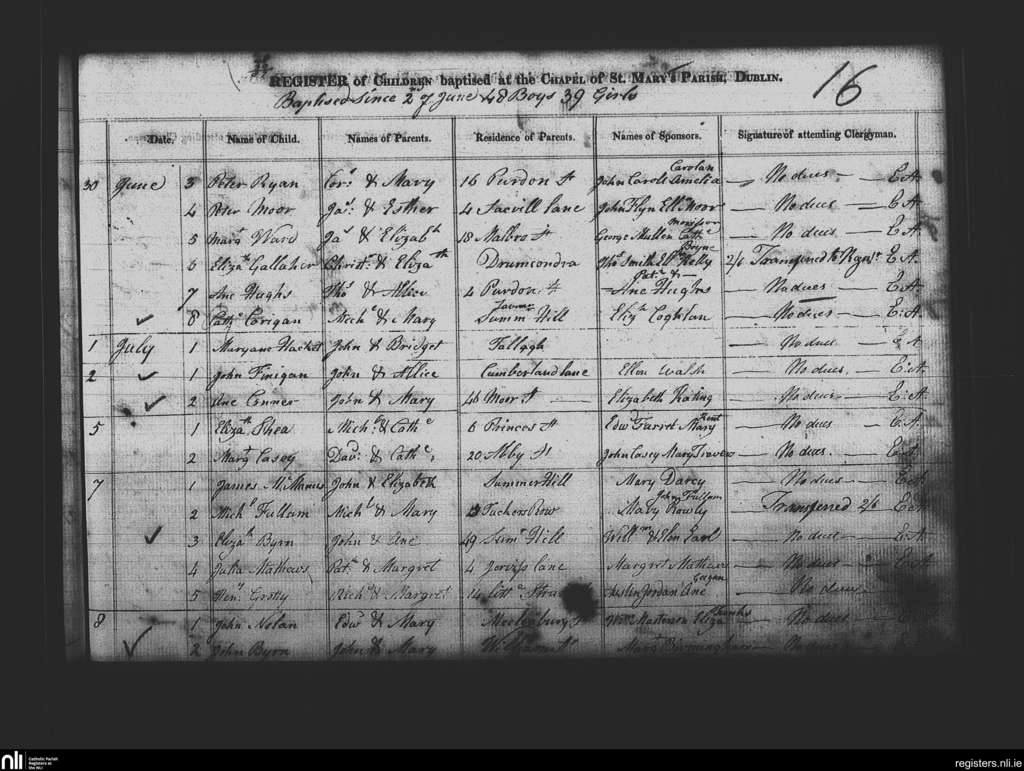 REGISTER of CHILDREN baptised at the CHAPEL of St. MARY'S PARISH, DUBLIN.
Baptised Since 2nd of June 48 Boys 39 Girls
16
Date. Name of Child. Names of Parents. Residence of Parents. Names of Sponsors. Signature of attending Clergyman.
Carolan
30 June 3 Peter Ryan & Mary 16 Purdon St John Amelia — No dues — E.A.
4 Peter Moor Jas. & Esther 4 Sacvill lane John Flyn Moor — No dues — E.A.
5 Margt Ward Jas & Elizabth 18 Malbro St George Mullen — No dues — E.A.
Boyne
6 Elizath Gallaher Christr. & Elizath Drumcondra Thos Smith Kelly 2/6 Transferred to E.A.
Patk & —
7 Ane Hughs Thos & Allice 4 Purdon St Ane Hughs — No dues — E.A.
8 Corigan Michl & Mary Summr Hill Elizth Coghlan — No dues — E.A.
1 July 1 Maryane Hacket John & Bridget Tallagh — No dues E A
2 1 John Finigan John & Allice Cumberland lane Ellen Walsh — No dues. — E.A.
2 Ane Conner John & Mary 46 Moor St Elizabeth Kating — No dues — E.A.
Kent
5 1 Elizath Shea Michl. & Cathe 6 Princes St Edwd Farrel Mary — No dues — E.A.
2 Margt Casey Davd. & Cathe. 20 Abby St John Casey Mary Travers — No dues. — E.A.
7 1 James McManus John & Elizabeth Summer Hill Mary Darcy — No dues — E.A.
John Fullam
2 Michl Fullam Michl & Mary Tuckers Row Mary Rowly — Transferred 2/6 E.A.
3 Elizath Byrn John & Ane 49 Sumr Hill Willm & Elen Earl — No dues — E.A.
4 Julia Mathews Patk & Margret 4 Jerviss lane Margret Mathews — No dues — E.A.
Gagan
5 Heny. Richd & Margret 14 Jordan Ane — No dues
8 1 John Nolan Edwd & Mary Meclenburg St Eliza — No dues — E
2 John Byrn John & Mary William St Margt Birmingham — No dues
nli Catholic Parish Registers at the NLI
registers.nli.ie